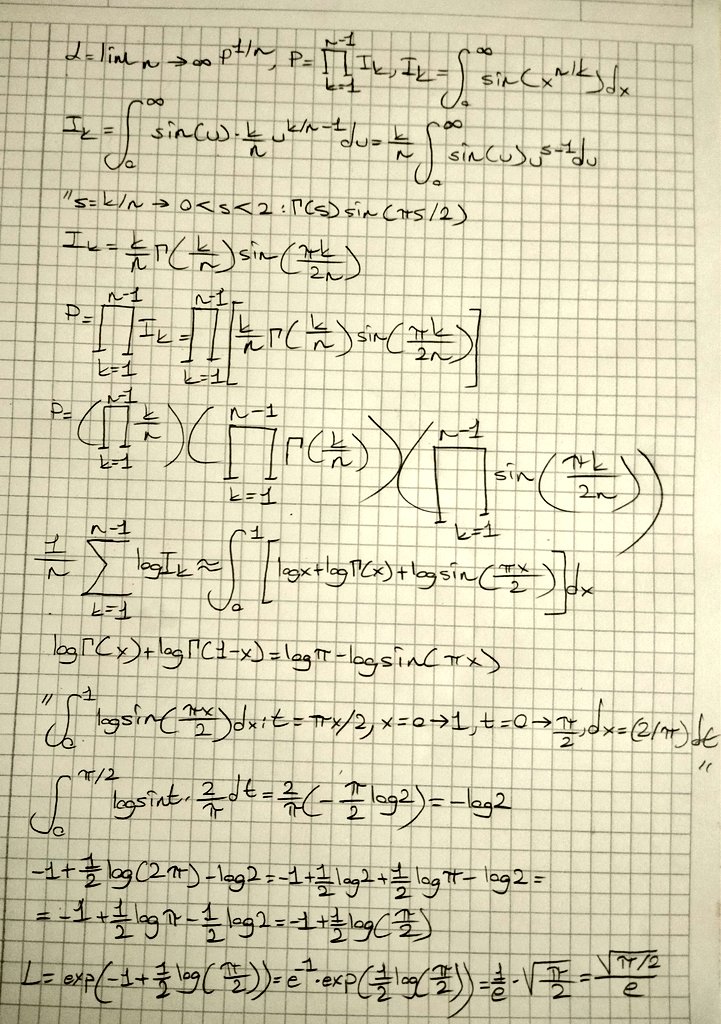 L=lim n→∞ P^1/n, P=∏_{k=1}^{n-1} I_k, I_k=∫_0^∞ sin(x^n/k)dx
I_k=∫_0^∞ sin(u)·k/n u^{k/n-1}du=k/n ∫_0^∞ sin(u)u^{s-1}du
"s=k/n→0<s<2:Γ(s)sin(πs/2)
I_k=k/n Γ(k/n)sin(πk/2n)
P=∏_{k=1}^{n-1} I_k=∏_{k=1}^{n-1}[k/n Γ(k/n)sin(πk/2n)]
P=(∏_{k=1}^{n-1} k/n)(∏_{k=1}^{n-1} Γ(k/n))(∏_{k=1}^{n-1} sin(πk/2n))
1/n ∑_{k=1}^{n-1} logI_k≈∫_0^1[logx+logΓ(x)+logsin(πx/2)]dx
logΓ(x)+logΓ(1-x)=logπ-logsin(πx)
"∫_0^1 logsin(πx/2)dx:t=πx/2,x=0→1,t=0→π/2,dx=(2/π)dt"
∫_0^{π/2} logsint·2/π dt=2/π(-π/2 log2)=-log2
-1+1/2 log(2π)-log2=-1+1/2 log2+1/2 logπ-log2=
=-1+1/2 logπ-1/2 log2=-1+1/2 log(π/2)
L=exp(-1+1/2 log(π/2))=e^-1·exp(1/2 log(π/2))=1/e·√π/2=√π/2/e